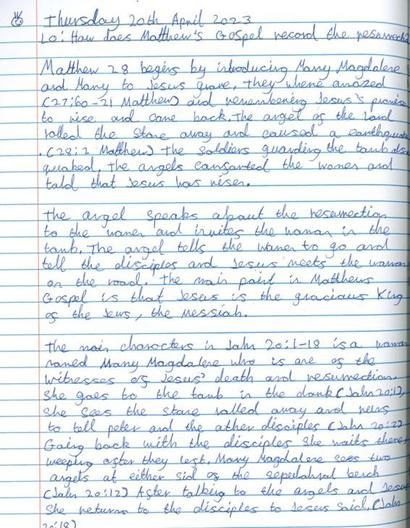 Thursday 20th April 2023
Lo: How does Matthew's Gospel record the resurrection
Matthew 28 begins by introducing Mary Magdalene
and Mary to Jesus grave, they where amazed
(27:60-21 Matthew) and remembering Jesus's promise
to rise and come back. The angel of the Lord
rolled the stone away and caused a earthquake
. (28:2 Matthew) The soldiers guarding the tomb
quaked, The angels the women and
told that Jesus was risen.
The angel speaks about the resurrection
to the women and invites the woman in the
tomb. The angel tells the women to go and
tell the disciples and Jesus meets the woman
on the road. The main point in Matthews
Gospel is that Jesus is the gracious King
of the Jews, the messiah.
The main characters in John 20:1-18 is a woman
named Mary Magdalene who is one of the
witnesses of Jesus' death and resurrection.
She goes to the tomb in the dark (John 20:1),
she sees the stone rolled away and runs
to tell peter and the other disciples (John 20:2)
Going back with the disciples she waits there
weeping after they left. Mary Magdalene sees two
angels at either side of the bench
(John 20:12) After talking to the angels and Jesus
She returns to the disciples to Jesus said, (John
20:18)